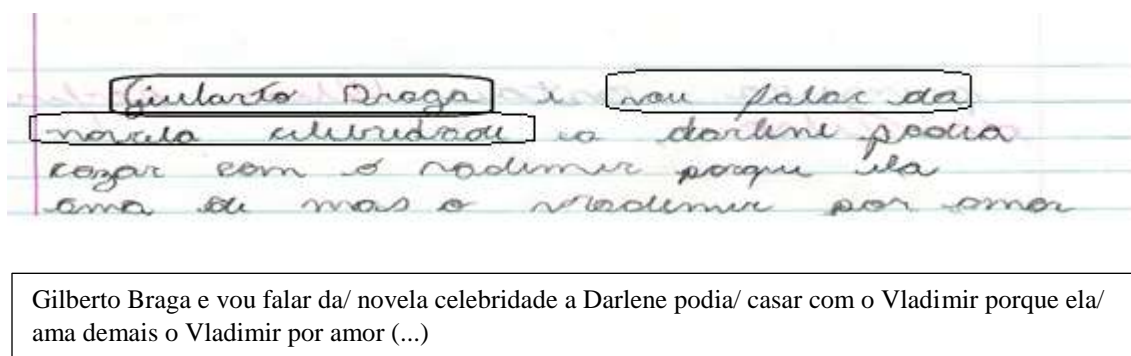 Giulbarto Braga e vou falar da
novela celebridade ea darlene podia
cazar com o vadimir porque ela
ama de mas o vladimir por amor
Gilberto Braga e vou falar da/ novela celebridade a Darlene podia/ casar com o Vladimir porque ela/
ama demais o Vladimir por amor (...)